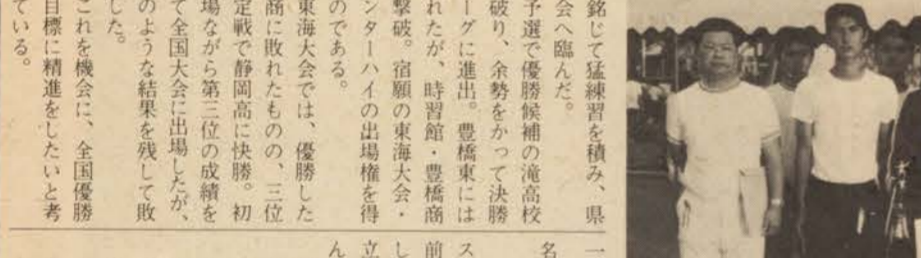 銘じて猛練習を積み、県
会へ臨んだ。
予選で優勝候補の滝高校
破り、余勢をかって決勝
ーグに進出。豊橋東には
れたが、時習館・豊橋商
撃破。宿願の東海大会・
ンターハイの出場権を得
のである。
東海大会では、優勝した
商に敗れたものの、三位
定戦で静岡高に快勝。初
場ながら第三位の成績を
て全国大会に出場したが、
のような結果を残して敗
した。
これを機会に、全国優勝
目標に精進をしたいと考
ている。
一
名
ス
前
し
立
ん